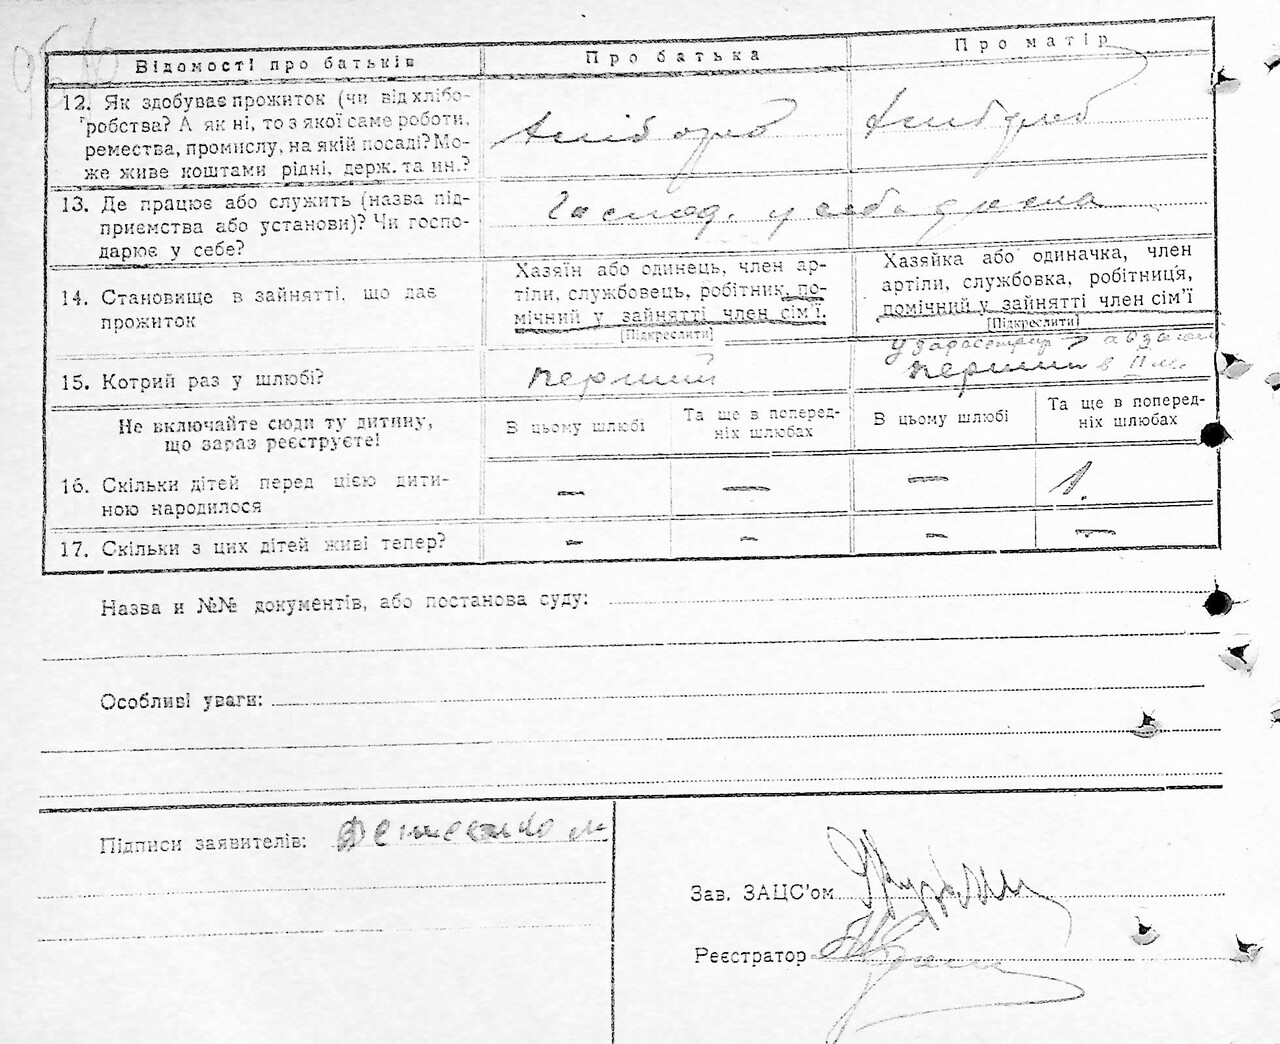 Відомості про батьків
Про батька
Про матір
12. Як здобуває прожиток (чи від хлібо-
робства? А як ні, то з якої саме роботи,
ремества, промислу, на якій посаді? Мо-
же живе коштами рідні, держ. та ин.?
13. Де працює або служить (назва під-
приємства або установи)? Чи госпо-
дарює у себе?
Господ. у себе
14. Становище в зайнятті, що дає
прожиток
Хазяїн або одинець, член ар-
тіли, службовець, робітник, по-
мічний у зайнятті член сім'ї.
[Підкреслити]
Хазяйка або одиначка, член
артіли, службовка, робітниця,
помічний у зайнятті член сім'ї
[Підкреслити]
15. Котрий раз у шлюбі?
перший
перший в II м.
Не включайте сюди ту дитину,
що зараз реєструєте!
В цьому шлюбі
Та ще в поперед-
ніх шлюбах
В цьому шлюбі
Та ще в поперед-
ніх шлюбах
16. Скільки дітей перед цією дити-
ною народилося
— — — 1.
17. Скільки з цих дітей живі тепер?
— — — —
Назва и №№ документів, або постанова суду:
Особливі уваги:
Підписи заявителів:
Зав. ЗАЦС'ом
Реєстратор